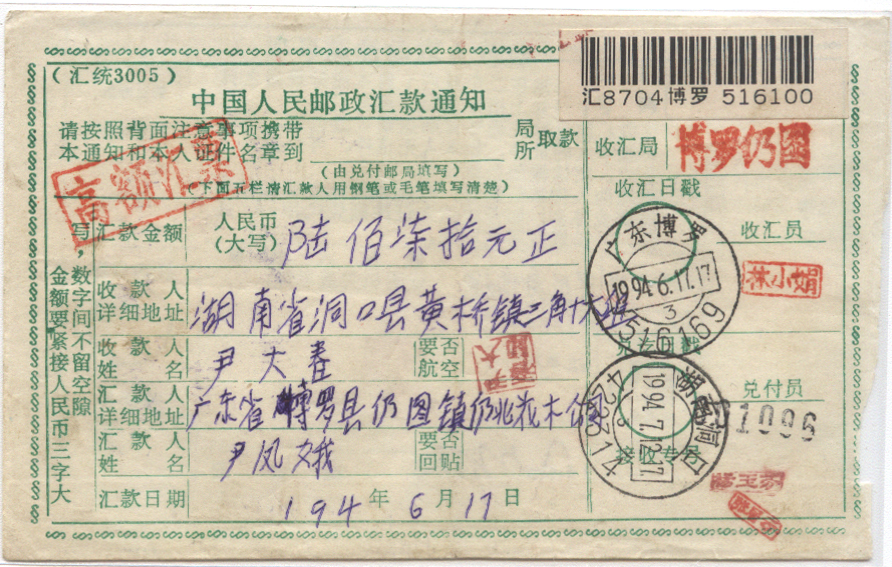 （汇统3005）
汇8704博罗 516100
中国人民邮政汇款通知
请按照背面注意事项携带
本通知和本人证件名章到
局所 取款
（由兑付邮局填写）
收汇局 博罗仍图
高额汇票
（下面五栏请汇款人用钢笔或毛笔填写清楚）
收汇日戳
汇款金额 人民币（大写） 陆佰柒拾元正
收汇员
林小娟
广东博罗
1994.6.17.17
3
516169
写，数字间不留空隙
金额要紧接人民币三字大
收款人详细地址 湖南省洞口县黄桥镇三角十六班
收款人姓名 尹大春
要否航空
汇款人详细地址 广东省博罗县仍图镇仍
兑付员
湖南洞口
1994.7.12.17
422107
1096
汇款人姓名 尹凤娥
要否回贴
接收专员
汇款日期 194年6月17日